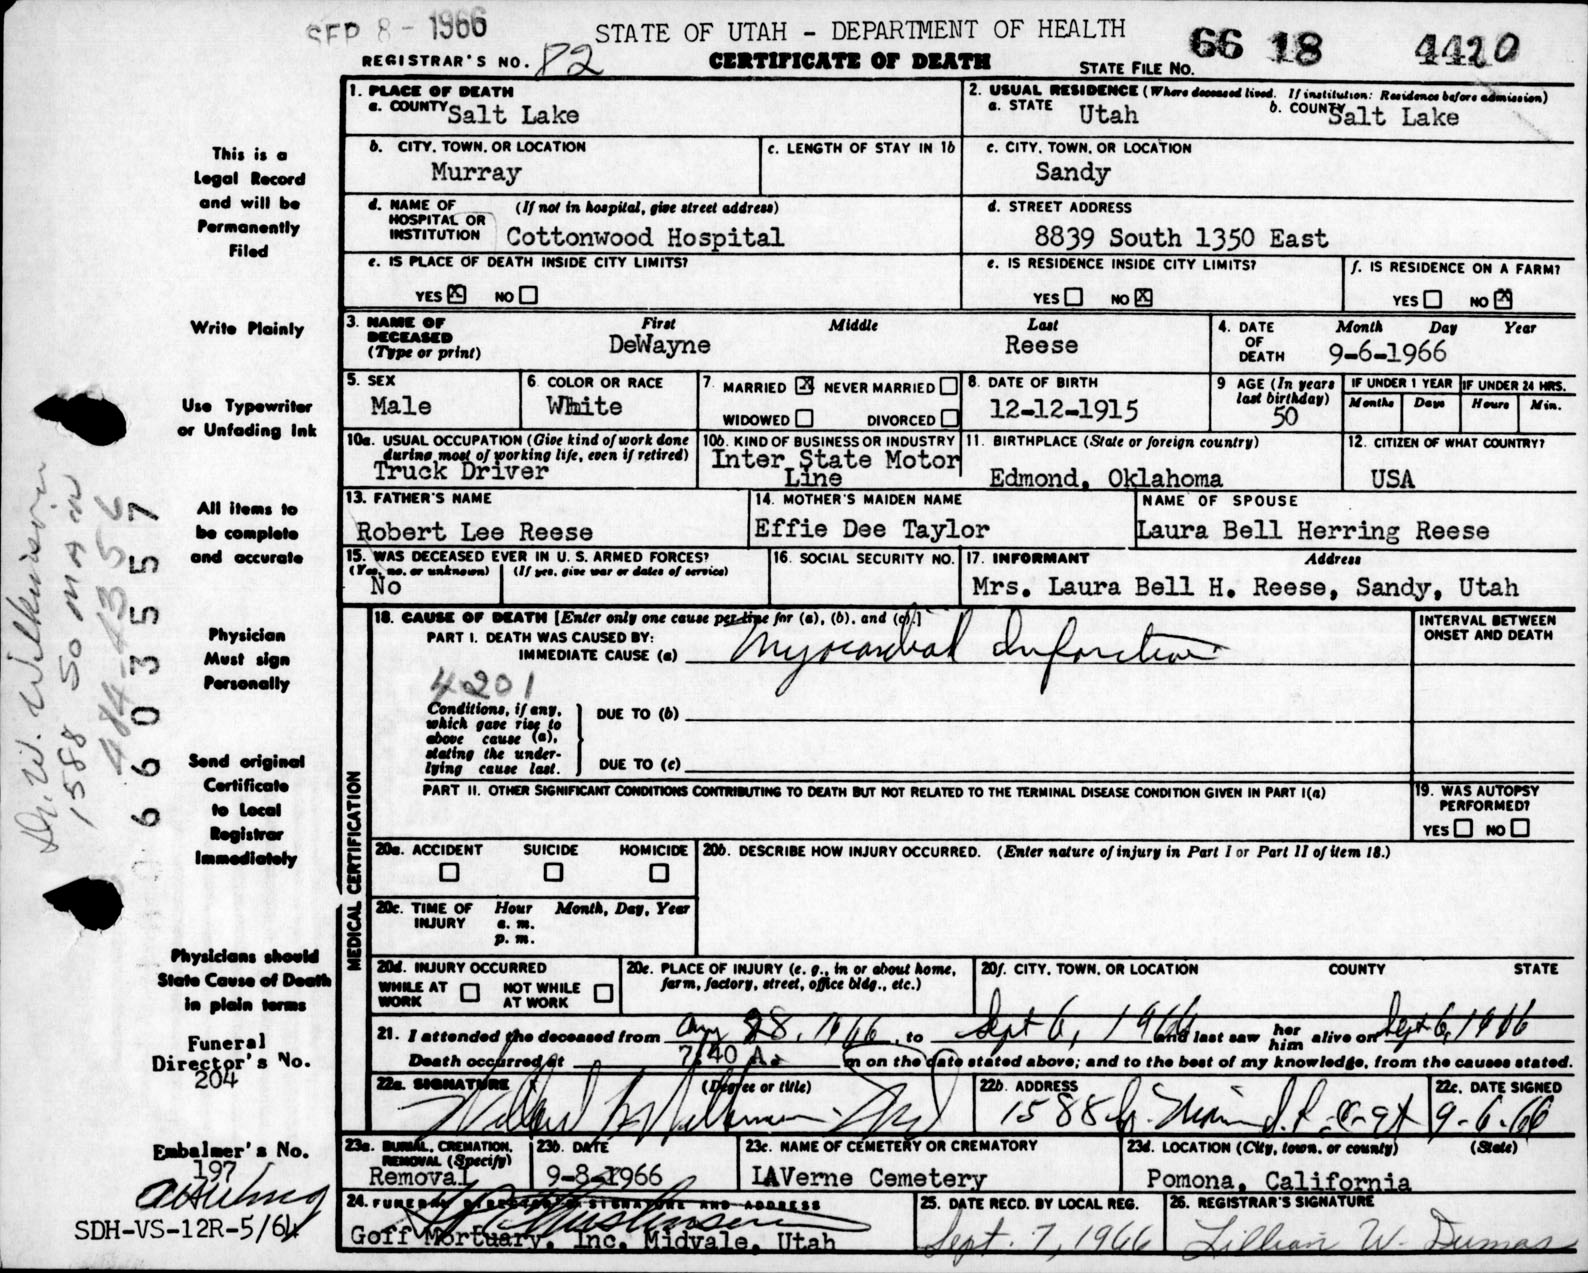 SEP 8 - 1966
STATE OF UTAH - DEPARTMENT OF HEALTH
66 18 4420
REGISTRAR'S NO. 82
CERTIFICATE OF DEATH
STATE FILE NO.
1. PLACE OF DEATH
a. COUNTY Salt Lake
2. USUAL RESIDENCE (Where deceased lived. If institution: Residence before admission)
a. STATE Utah b. COUNTY Salt Lake
b. CITY, TOWN, OR LOCATION Murray
c. LENGTH OF STAY IN 1b
c. CITY, TOWN, OR LOCATION Sandy
d. NAME OF HOSPITAL OR INSTITUTION (If not in hospital, give street address)
Cottonwood Hospital
d. STREET ADDRESS
8839 South 1350 East
e. IS PLACE OF DEATH INSIDE CITY LIMITS?
YES X NO
e. IS RESIDENCE INSIDE CITY LIMITS?
YES NO X
f. IS RESIDENCE ON A FARM?
YES NO X
3. NAME OF DECEASED (Type or print)
First Middle Last
DeWayne Reese
4. DATE OF DEATH Month Day Year
9-6-1966
5. SEX Male
6. COLOR OR RACE White
7. MARRIED X NEVER MARRIED
WIDOWED DIVORCED
8. DATE OF BIRTH 12-12-1915
9 AGE (In years last birthday) 50
IF UNDER 1 YEAR Months Days
IF UNDER 24 HRS. Hours Min.
10a. USUAL OCCUPATION (Give kind of work done during most of working life, even if retired)
Truck Driver
10b. KIND OF BUSINESS OR INDUSTRY
Inter State Motor Line
11. BIRTHPLACE (State or foreign country)
Edmond, Oklahoma
12. CITIZEN OF WHAT COUNTRY?
USA
13. FATHER'S NAME
Robert Lee Reese
14. MOTHER'S MAIDEN NAME
Effie Dee Taylor
NAME OF SPOUSE
Laura Bell Herring Reese
15. WAS DECEASED EVER IN U. S. ARMED FORCES?
(Yes, no, or unknown) (If yes, give war or dates of service)
No
16. SOCIAL SECURITY NO.
17. INFORMANT Address
Mrs. Laura Bell H. Reese, Sandy, Utah
MEDICAL CERTIFICATION
18. CAUSE OF DEATH [Enter only one cause per line for (a), (b), and (c).]
PART I. DEATH WAS CAUSED BY:
IMMEDIATE CAUSE (a) Myocardial Infarction
INTERVAL BETWEEN ONSET AND DEATH
4201
Conditions, if any, which gave rise to above cause (a), stating the underlying cause last.
DUE TO (b)
DUE TO (c)
PART II. OTHER SIGNIFICANT CONDITIONS CONTRIBUTING TO DEATH BUT NOT RELATED TO THE TERMINAL DISEASE CONDITION GIVEN IN PART I(a)
19. WAS AUTOPSY PERFORMED?
YES NO
20a. ACCIDENT SUICIDE HOMICIDE
20b. DESCRIBE HOW INJURY OCCURRED. (Enter nature of injury in Part I or Part II of item 18.)
20c. TIME OF INJURY Hour Month, Day, Year
a. m.
p. m.
20d. INJURY OCCURRED
WHILE AT WORK NOT WHILE AT WORK
20e. PLACE OF INJURY (e. g., in or about home, farm, factory, street, office bldg., etc.)
20f. CITY, TOWN, OR LOCATION COUNTY STATE
21. I attended the deceased from Aug 28, 1966, to Sept 6, 1966 and last saw her him alive on Sept 6, 1966
Death occurred at 7:40 A. m on the date stated above; and to the best of my knowledge, from the causes stated.
22a. SIGNATURE (Degree or title)
22b. ADDRESS
1588 So. Main S.L.C. Ut
22c. DATE SIGNED
9-6-66
23a. BURIAL, CREMATION, REMOVAL (Specify)
Removal
23b. DATE
9-8-1966
23c. NAME OF CEMETERY OR CREMATORY
LAVerne Cemetery
23d. LOCATION (City, town, or county) (State)
Pomona, California
24. FUNERAL DIRECTOR'S SIGNATURE AND ADDRESS
Goff Mortuary, Inc. Midvale, Utah
25. DATE RECD. BY LOCAL REG.
Sept. 7, 1966
26. REGISTRAR'S SIGNATURE
Lillian W. Dumas
This is a
Legal Record
and will be
Permanently
Filed
Write Plainly
Use Typewriter
or Unfading Ink
All items to
be complete
and accurate
Physician
Must sign
Personally
Send original
Certificate
to Local
Registrar
Immediately
Physicians should
State Cause of Death
in plain terms
Funeral
Director's No.
204
Embalmer's No.
197
SDH-VS-12R-5/64
Dr. W. Wilkinson
1588 So Main
484-4356
66035557